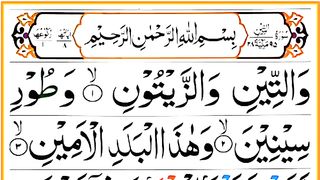 بِسْمِ اللهِ الرَّحْمٰنِ الرَّحِيْمِ
وَالتِّيْنِ وَالزَّيْتُوْنِ ۙ‏﴿۱﴾ وَطُوْرِ
سِيْنِيْنَ ۙ‏﴿۲﴾ وَهٰذَا الْبَلَدِ الْاَمِيْنِ ۙ‏﴿۳﴾